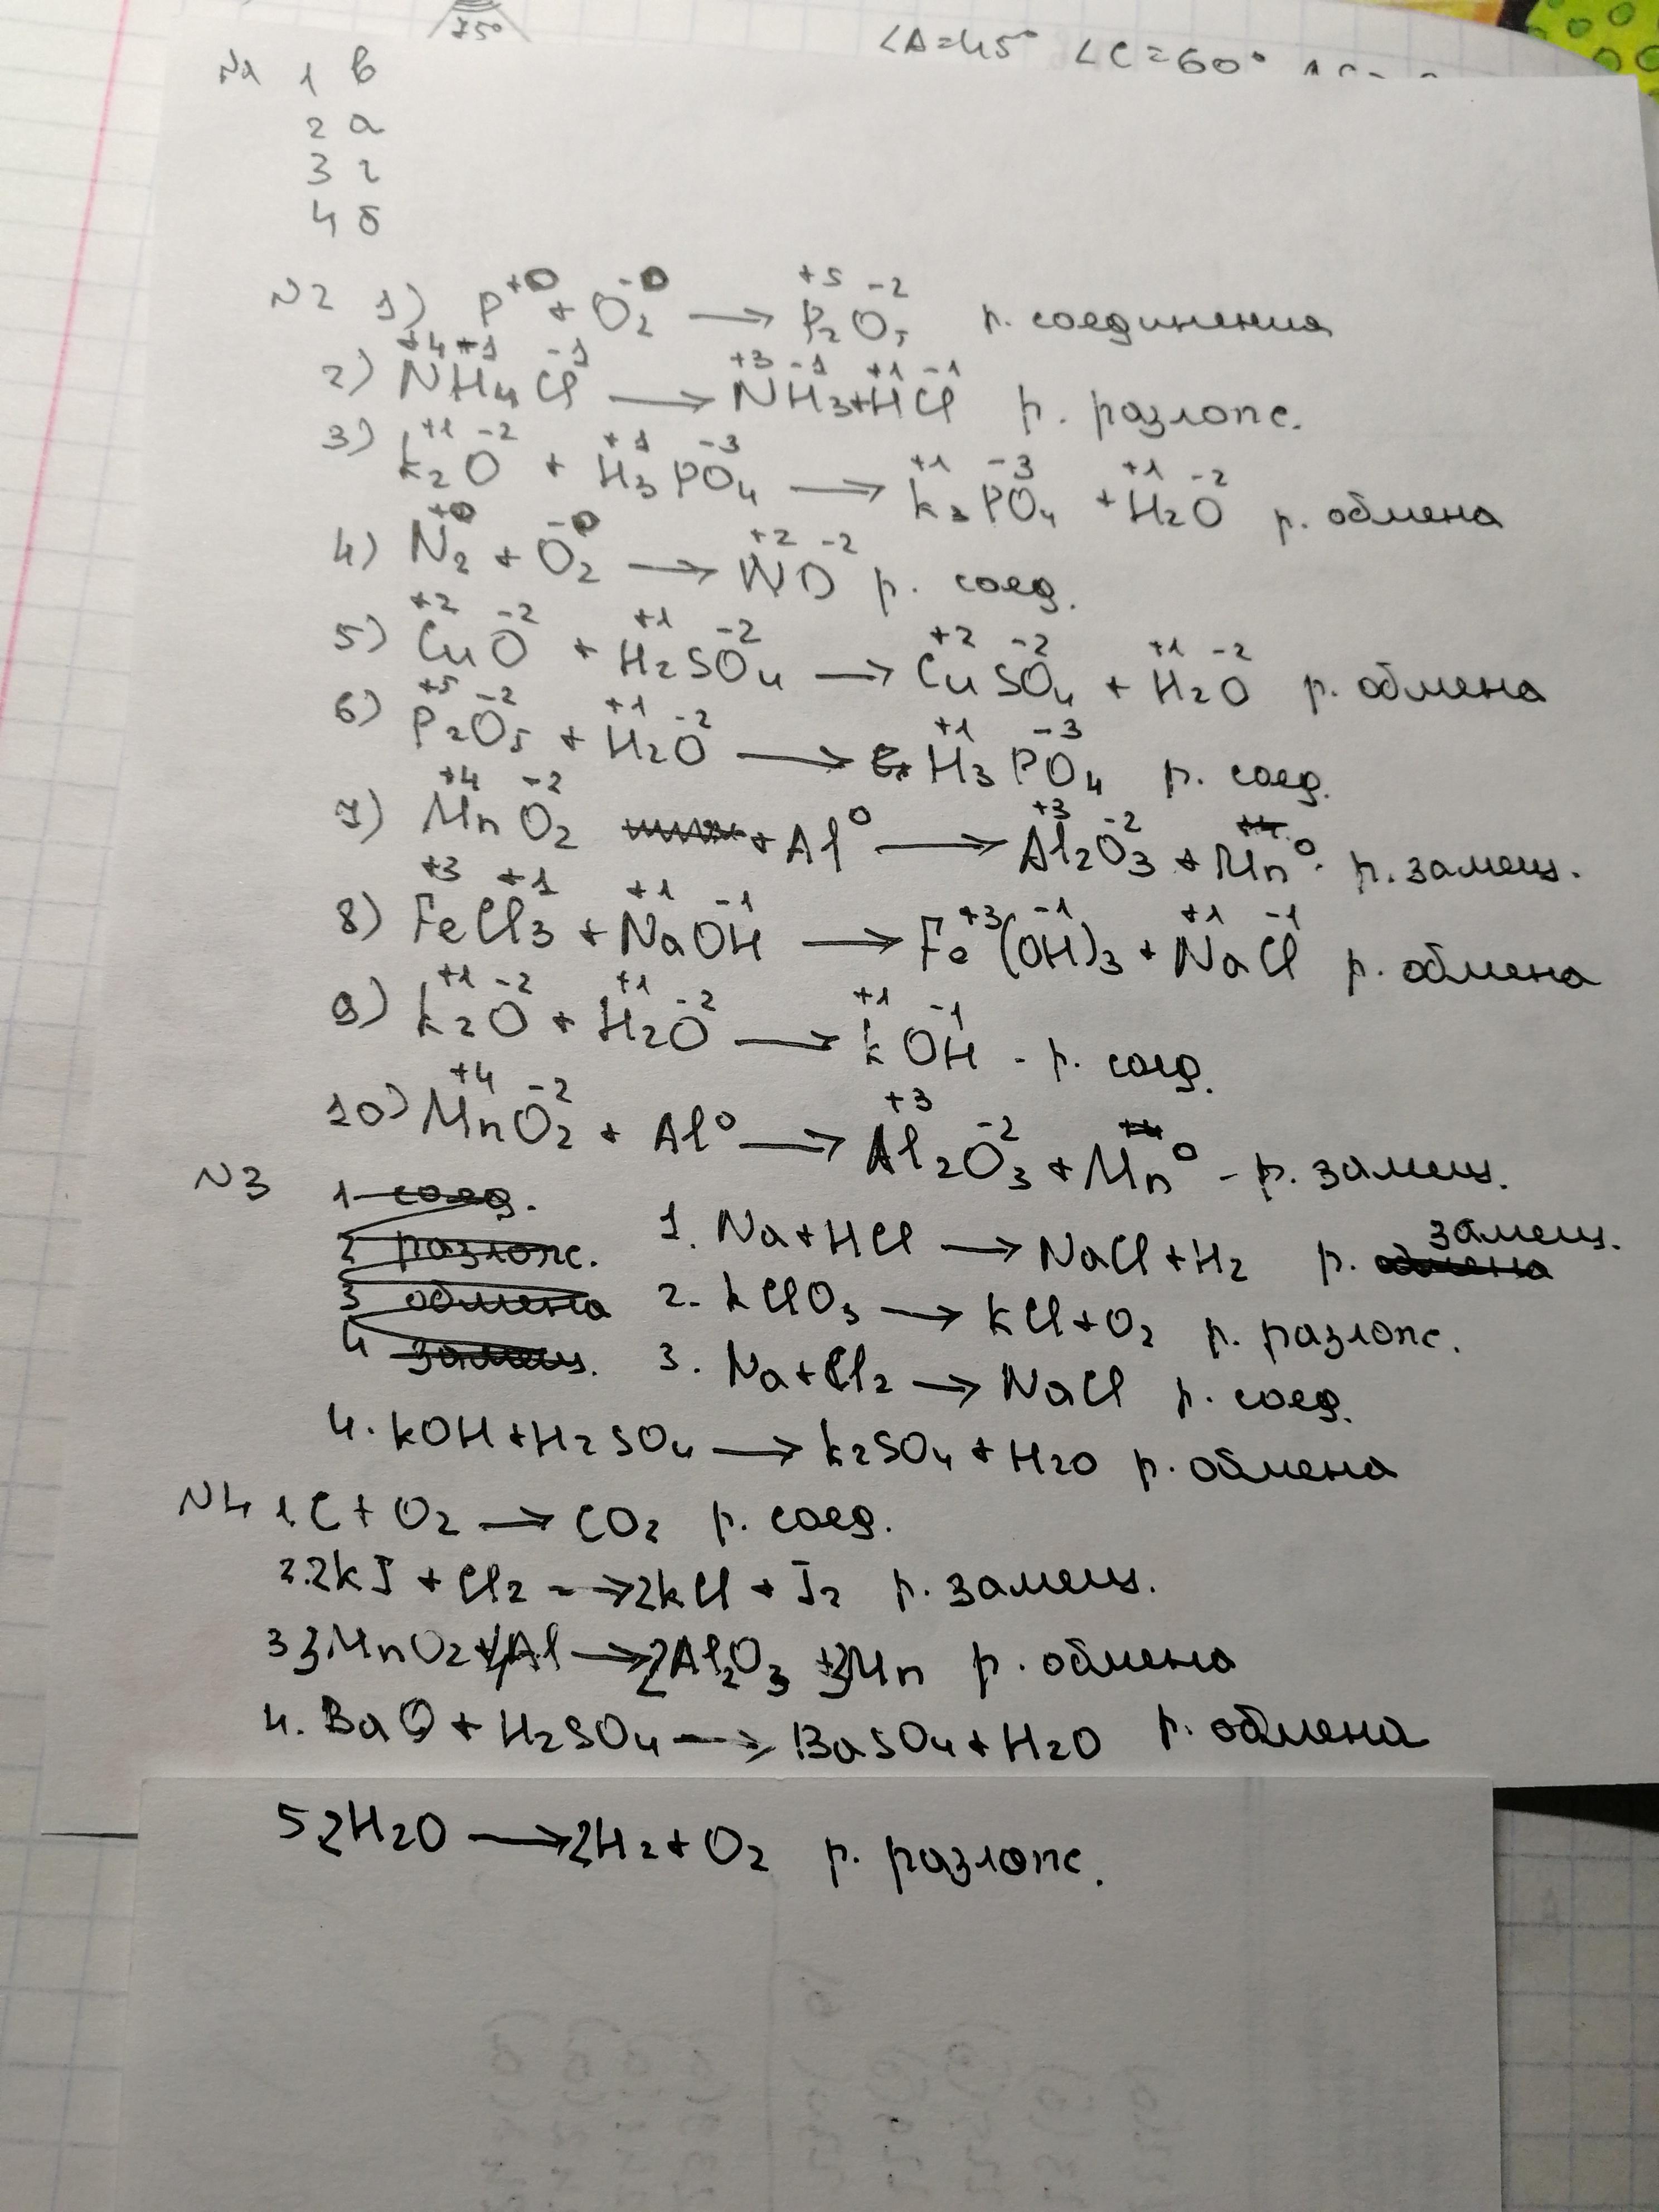 75°
∠A=45° ∠C=60°
N1 1 в
2 а
3 г
4 б
N2 1) P⁺⁰ + O₂⁻⁰ → P₂⁺⁵O₅⁻² р. соединения
2) N⁺⁴H₄⁺¹Cl⁻¹ → N⁺³H₃⁻¹+H⁺¹Cl⁻¹ р. разлож.
3) K₂⁺¹O⁻² + H₃⁺¹PO₄⁻³ → K₃⁺¹PO₄⁻³ + H₂⁺¹O⁻² р. обмена
4) N₂⁺⁰ + O₂⁻⁰ → N⁺²O⁻² р. соед.
5) Cu⁺²O⁻² + H₂⁺¹SO₄⁻² → Cu⁺²SO₄⁻² + H₂⁺¹O⁻² р. обмена
6) P₂⁺⁵O₅⁻² + H₂⁺¹O⁻² → H₃⁺¹PO₄⁻³ р. соед.
7) Mn⁺⁴O₂⁻² + Al⁰ → Al₂⁺³O₃⁻² + Mn⁰ р. замещ.
8) Fe⁺³Cl₃⁺¹ + Na⁺¹OH⁻¹ → Fe⁺³(OH)₃⁻¹ + Na⁺¹Cl⁻¹ р. обмена
9) K₂⁺¹O⁻² + H₂⁺¹O⁻² → K⁺¹OH⁻¹ - р. соед.
10) Mn⁺⁴O₂⁻² + Al⁰ → Al₂⁺³O₃⁻² + Mn⁰ - р. замещ.
N3 1 соед.
2 разлож. 1. Na+HCl → NaCl+H₂ р. обмена замещ.
3 обмена 2. KClO₃ → KCl+O₂ р. разлож.
4 замещ. 3. Na+Cl₂ → NaCl р. соед.
4. KOH+H₂SO₄ → K₂SO₄+H₂O р. обмена
N4 1. C+O₂ → CO₂ р. соед.
2. 2KJ + Cl₂ → 2KCl + J₂ р. замещ.
3 3MnO₂+4Al → 2Al₂O₃ +3Mn р. обмена
4. BaO + H₂SO₄ → BaSO₄+H₂O р. обмена
5 2H₂O → 2H₂+O₂ р. разлож.